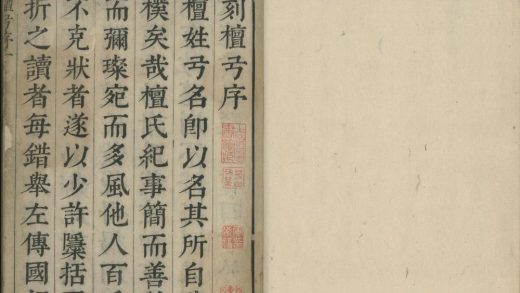 刻檀弓序
檀姓弓名卽以名其所自
樸矣哉檀氏紀事簡而善
而彌璨宛而多風他人百
不克狀者遂以少許檃括
折之讀者每錯舉左傳國
檀弓序一